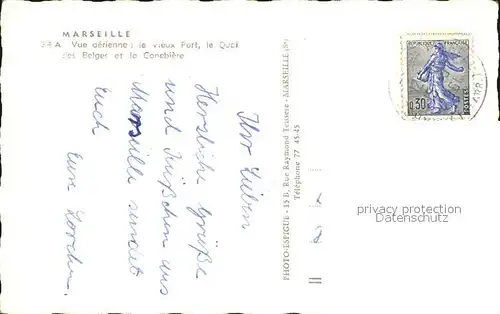 MARSEILLE
58 A Vue aérienne : le vieux Port, le Quai
des Belges et la Canebière
Ihr Lieben
Herzliche Grüße
und Küßchen aus
Marseille sendet
Euch
eure Lorchen.
PHOTO-ESPIGUE - 15 B, Rue Raymond Teisseire - MARSEILLE (9e)
Téléphone 77 45-45
REPUBLIQUE FRANÇAISE
0,30
POSTES
privacy protection
Datenschutz